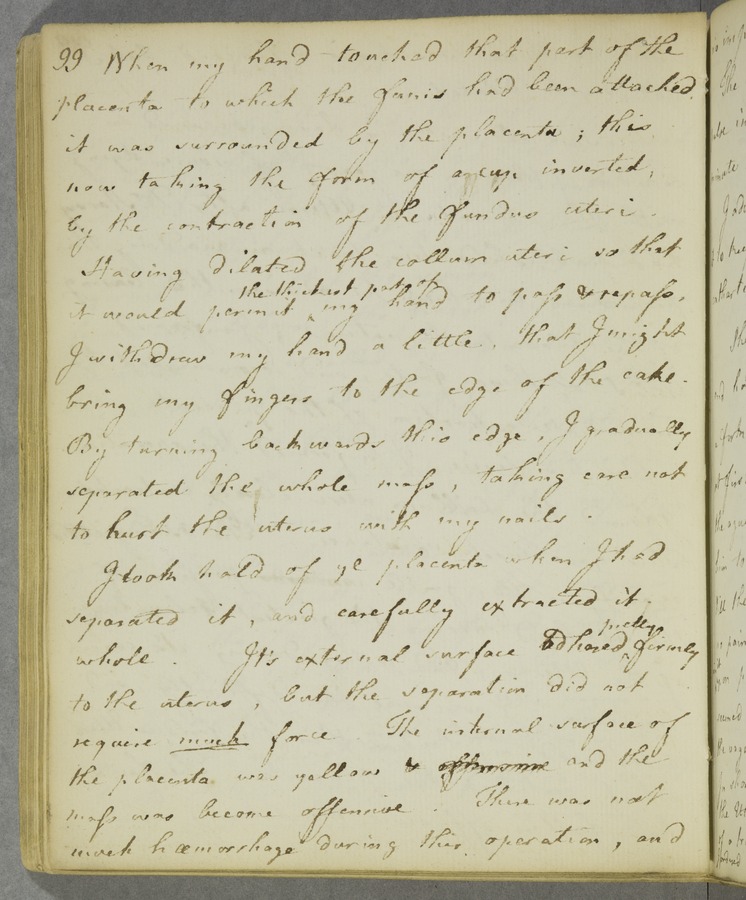 99 When my hand touched that part of the
placenta to which the funis had been attached,
it was surrounded by the placenta ; this
now taking the form of a cup inverted,
by the contraction of the fundus uteri.
Having dilated the collum uteri so that
the thickest part of
it would permit ^ my hand to pass & repass,
I withdrew my hand a little, that I might
bring my fingers to the edge of the cake.
By turning backwards this edge, I gradually
separated the whole mass, taking care not
to hurt the uterus with my nails.
I took hold of ye placenta when I had
separated it, and carefully extracted it
whole. It's external surface adhered ^ firmly
pretty
to the uterus, but the separation did not
require much force. The internal surface of
the placenta was yellow & offensive and the
mass was become offensive. There was not
much hæmorrhage during this operation, and